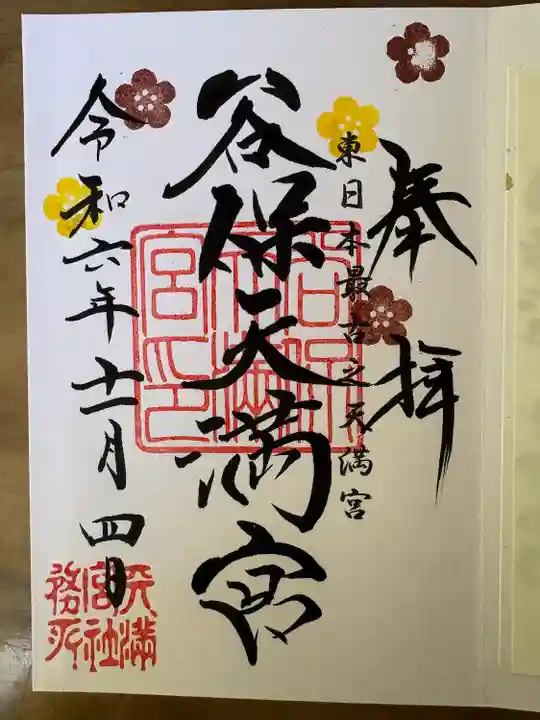 奉拝
東日本最古之天満宮
谷保天満宮
令和六年十一月四日
谷保天満宮印
天満宮社務所